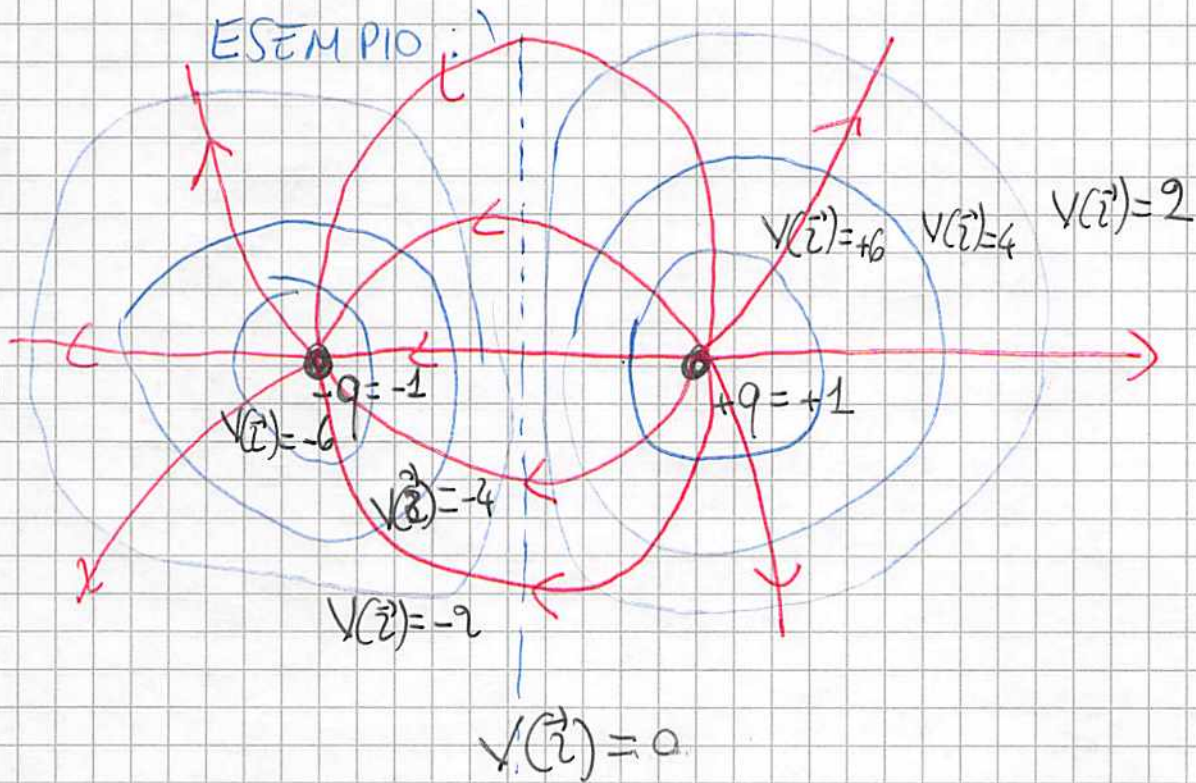 ESEMPIO:
V(r⃗)=+6
V(r⃗)=4
V(r⃗)=2
-q=-1
+q=+1
V(r⃗)=-6
V(r⃗)=-4
V(r⃗)=-2
V(r⃗)=0